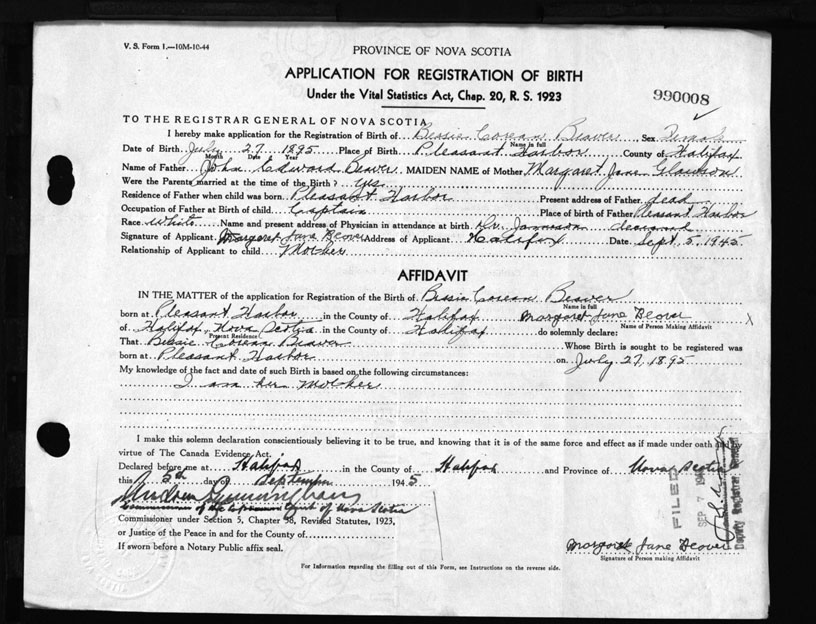 V. S. Form 1.—10M-10-44
PROVINCE OF NOVA SCOTIA
APPLICATION FOR REGISTRATION OF BIRTH
Under the Vital Statistics Act, Chap. 20, R. S. 1923
990008
TO THE REGISTRAR GENERAL OF NOVA SCOTIA
I hereby make application for the Registration of Birth of Bessie Corean Beaver, Sex Female
Name in full
Date of Birth July 27 1895 Place of Birth Pleasant Harbor County of Halifax
Month Date Year
Name of Father John Edward Beaver MAIDEN NAME of Mother Margaret Jane
Were the Parents married at the time of the Birth? yes
Residence of Father when child was born Pleasant Harbor Present address of Father dead
Occupation of Father at Birth of child Captain Place of birth of Father Pleasant Harbor
Race White Name and present address of Physician in attendance at birth Dr.
Signature of Applicant Margaret Jane Beaver Address of Applicant Halifax Date Sept. 5. 1945
Relationship of Applicant to child Mother
AFFIDAVIT
IN THE MATTER of the application for Registration of the Birth of Bessie Corean Beaver
Name in full
born at Pleasant Harbor in the County of Halifax Margaret Jane Beaver
of Halifax, Nova Scotia in the County of Halifax do solemnly declare:
Present Residence Name of Person Making Affidavit
That Bessie Corean Beaver Whose Birth is sought to be registered was
born at Pleasant Harbor on July 27, 1895
My knowledge of the fact and date of such Birth is based on the following circumstances:
I am her Mother
I make this solemn declaration conscientiously believing it to be true, and knowing that it is of the same force and effect as if made under oath and by
virtue of The Canada Evidence Act.
Declared before me at Halifax in the County of Halifax and Province of Nova Scotia
this 5th day of September 1945
Commissioner of the Supreme Court of Nova Scotia
Commissioner under Section 5, Chapter 38, Revised Statutes, 1923,
or Justice of the Peace in and for the County of
If sworn before a Notary Public affix seal.
FILED
SEP 7 194
Deputy Registrar General
Margaret Jane Beaver
Signature of Person making Affidavit
For Information regarding the filling out of this Form, see Instructions on the reverse side.